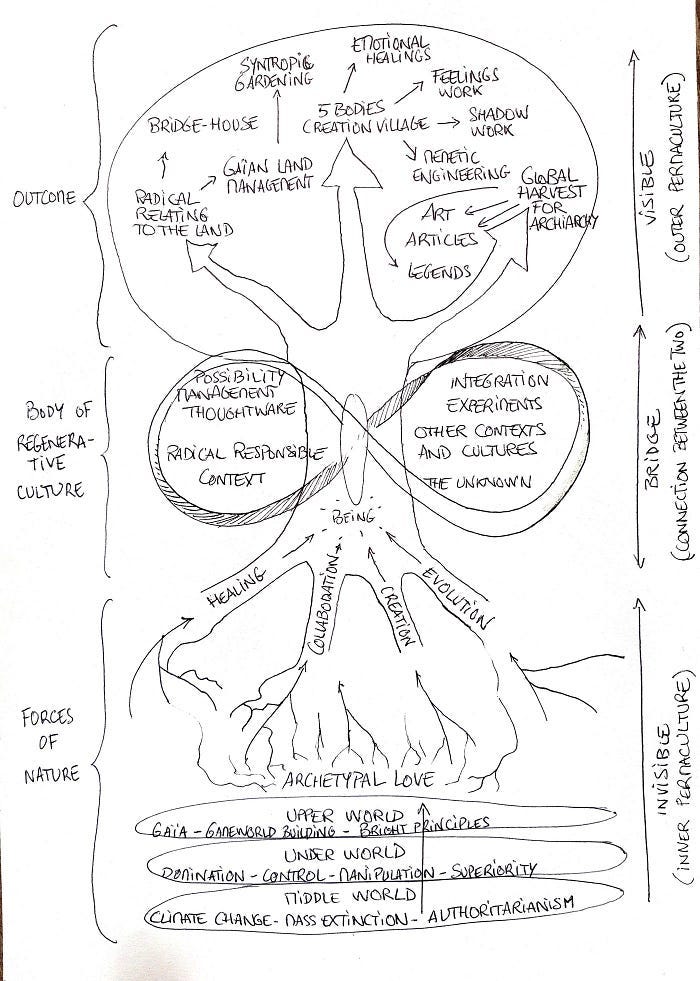 EMOTIONAL
HEALINGS
SYNTROPIC
GARDENING
FEELINGS
WORK
5 BODIES
CREATION VILLAGE
SHADOW
WORK
BRIDGE-HOUSE
MEMETIC
ENGINEERING
GAÏAN LAND
MANAGEMENT
RADICAL
RELATING
TO THE LAND
GLOBAL
HARVEST
FOR
ARCHIARCHY
ART
ARTICLES
LEGENDS
OUTCOME
VISIBLE
(OUTER PERMACULTURE)
BODY OF
REGENERA-
TIVE
CULTURE
POSSIBILITY
MANAGEMENT
THOUGHTWARE
RADICAL RESPONSIBLE
CONTEXT
INTEGRATION
EXPERIMENTS
OTHER CONTEXTS
AND CULTURES
THE UNKNOWN
BRIDGE
(CONNECTION BETWEEN THE TWO)
BEING
HEALING
COLLABORATION
CREATION
EVOLUTION
FORCES
OF
NATURE
INVISIBLE
(INNER PERMACULTURE)
ARCHETYPAL LOVE
UPPER WORLD
GAÏA - GAMEWORLD BUILDING - BRIGHT PRINCIPLES
UNDER WORLD
DOMINATION - CONTROL - MANIPULATION - SUPERIORITY
MIDDLE WORLD
CLIMATE CHANGE - MASS EXTINCTION - AUTHORITARIANISM